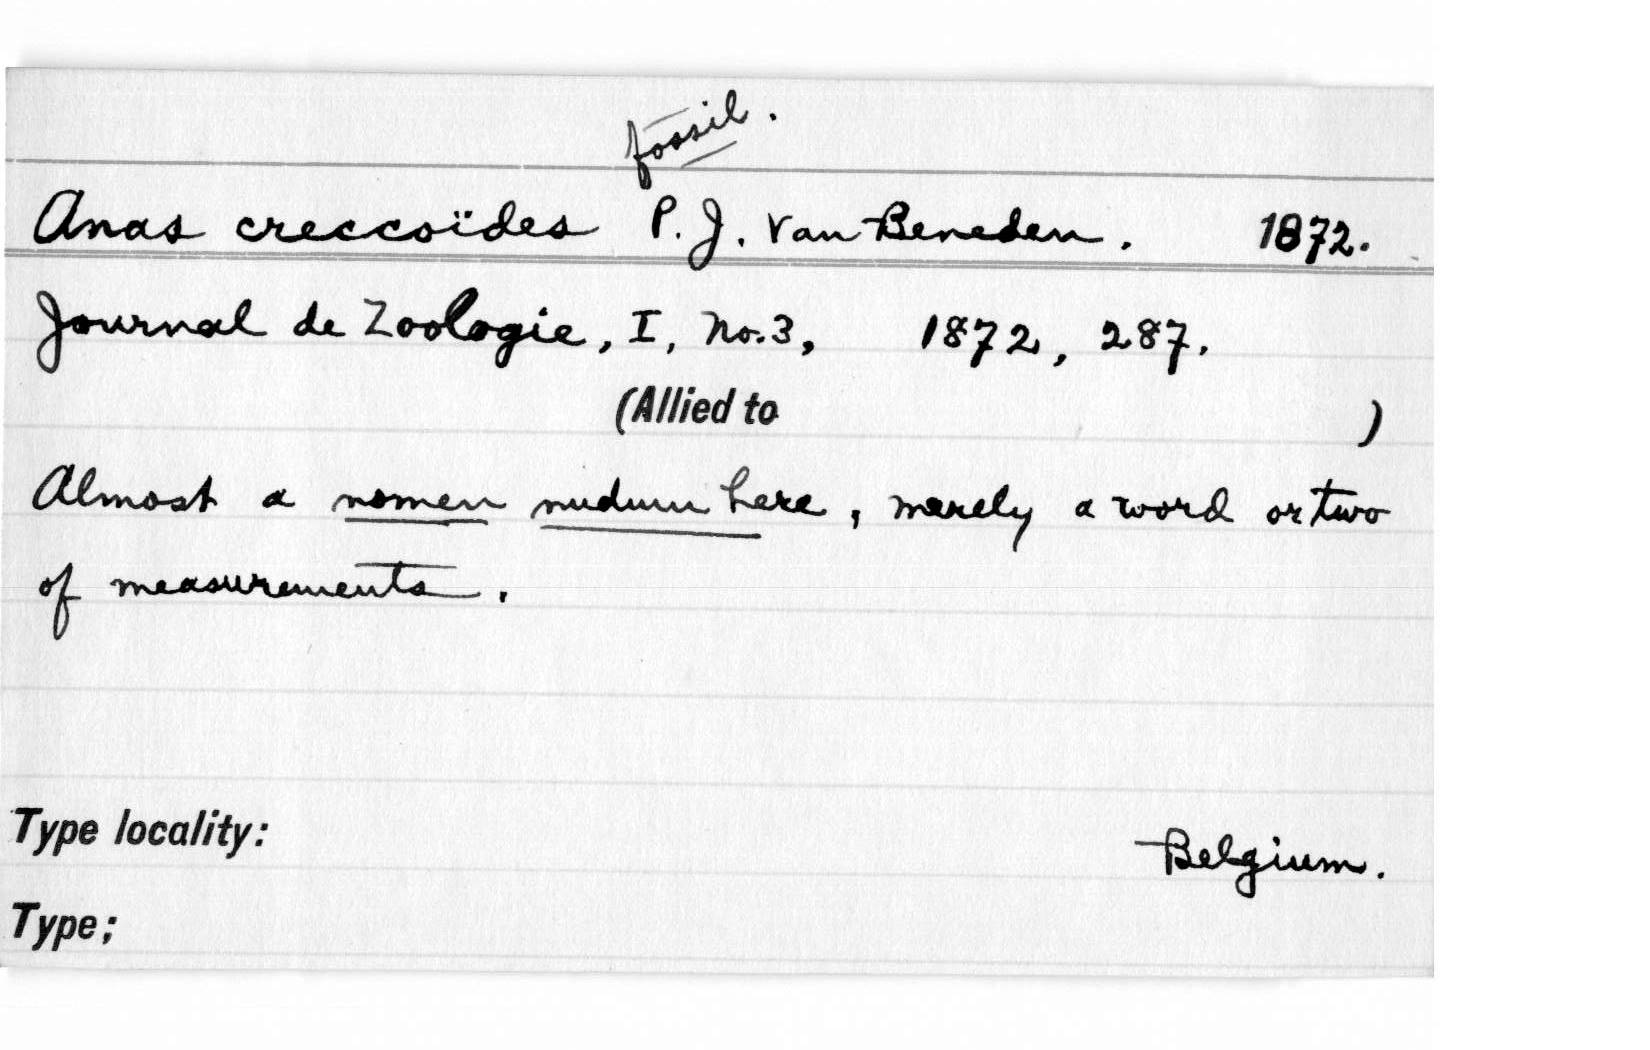 fossil.
Anas creccoïdes P. J. Van Beneden. 1872.
Journal de Zoologie, I, No. 3, 1872, 287.
(Allied to )
Almost a nomen nudum here, merely a word or two
of measurements.
Type locality: Belgium.
Type;